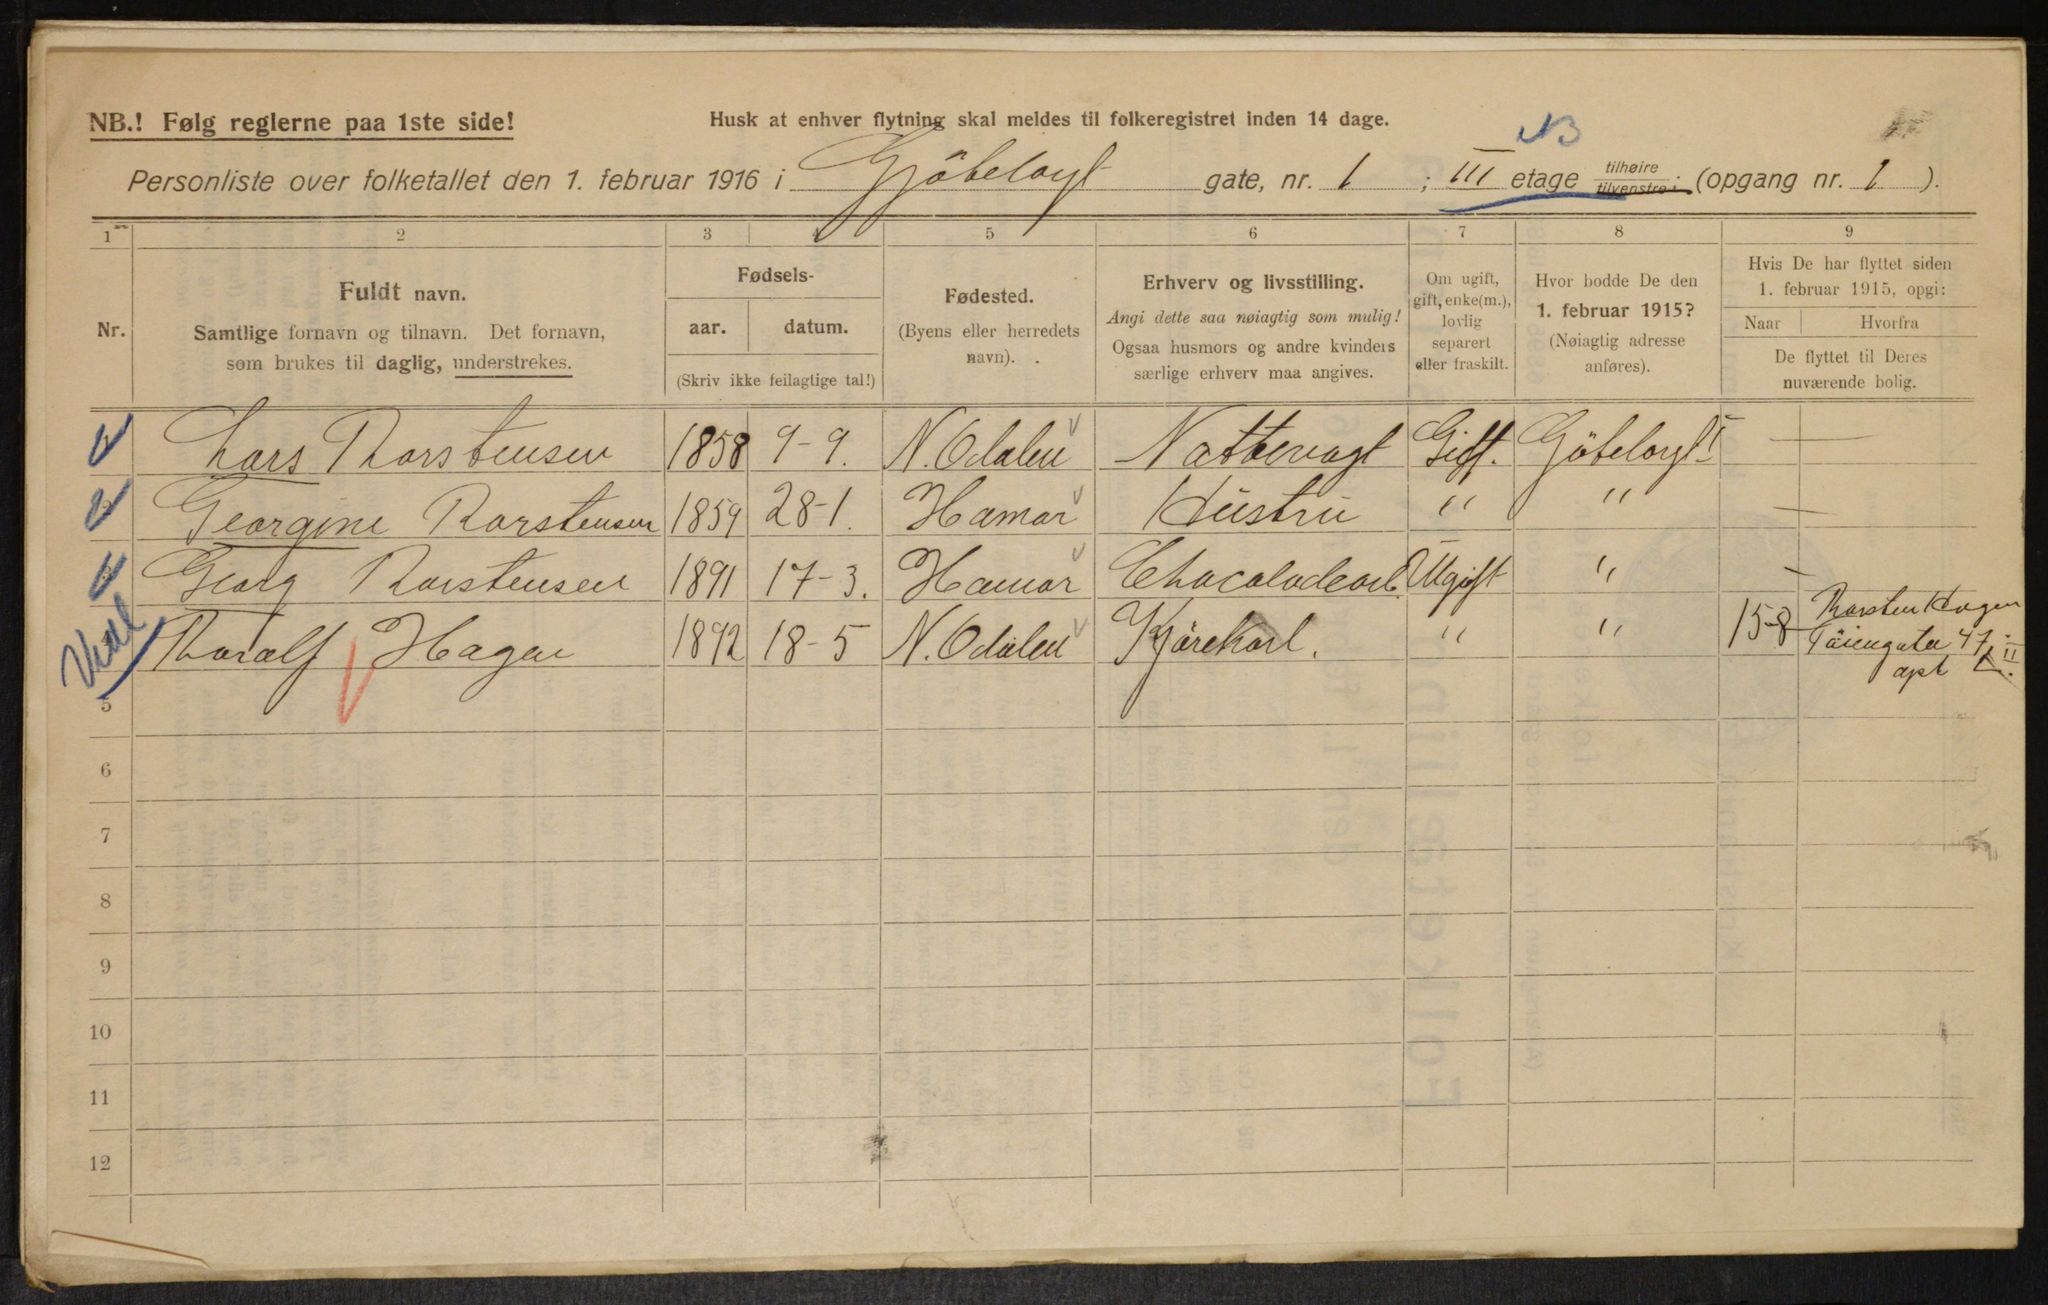 NB.! Følg reglerne paa 1ste side!
Husk at enhver flytning skal meldes til folkeregistret inden 14 dage.
NB
Personliste over folketallet den 1. februar 1916 i Gjöbelorgt gate, nr. 1 ; III etage tilhøire tilvenstre. (opgang nr. 1 ).
1 2 3 4 5 6 7 8 9
Nr.
Fuldt navn.
Samtlige fornavn og tilnavn. Det fornavn,
som brukes til daglig, understrekes.
Fødsels-
aar. datum.
(Skriv ikke feilagtige tal!)
Fødested.
(Byens eller herredets
navn).
Erhverv og livsstilling.
Angi dette saa nøiagtig som mulig!
Ogsaa husmors og andre kvinders
særlige erhverv maa angives.
Om ugift,
gift, enke(m.),
lovlig
separert
eller fraskilt.
Hvor bodde De den
1. februar 1915?
(Nøiagtig adresse
anføres).
Hvis De har flyttet siden
1. februar 1915, opgi:
Naar Hvorfra
De flyttet til Deres
nuværende bolig.
Lars Thorstensen 1858 9-9. N. Odalen Nattevagt Gift. Göbelorgt 1 —
Georgine Thorstensen 1859 28-1. Hamar Hustru " " —
Georg Thorstensen 1891 17-3. Hamar Chocoladearb. Ugift " —
Thoralf Hagen 1892 18-5 N. Odalen Kjörekarl. " " 15-8 Thorsten Hagen
Töiengata 47 II
5
6
7
8
9
10
11
12